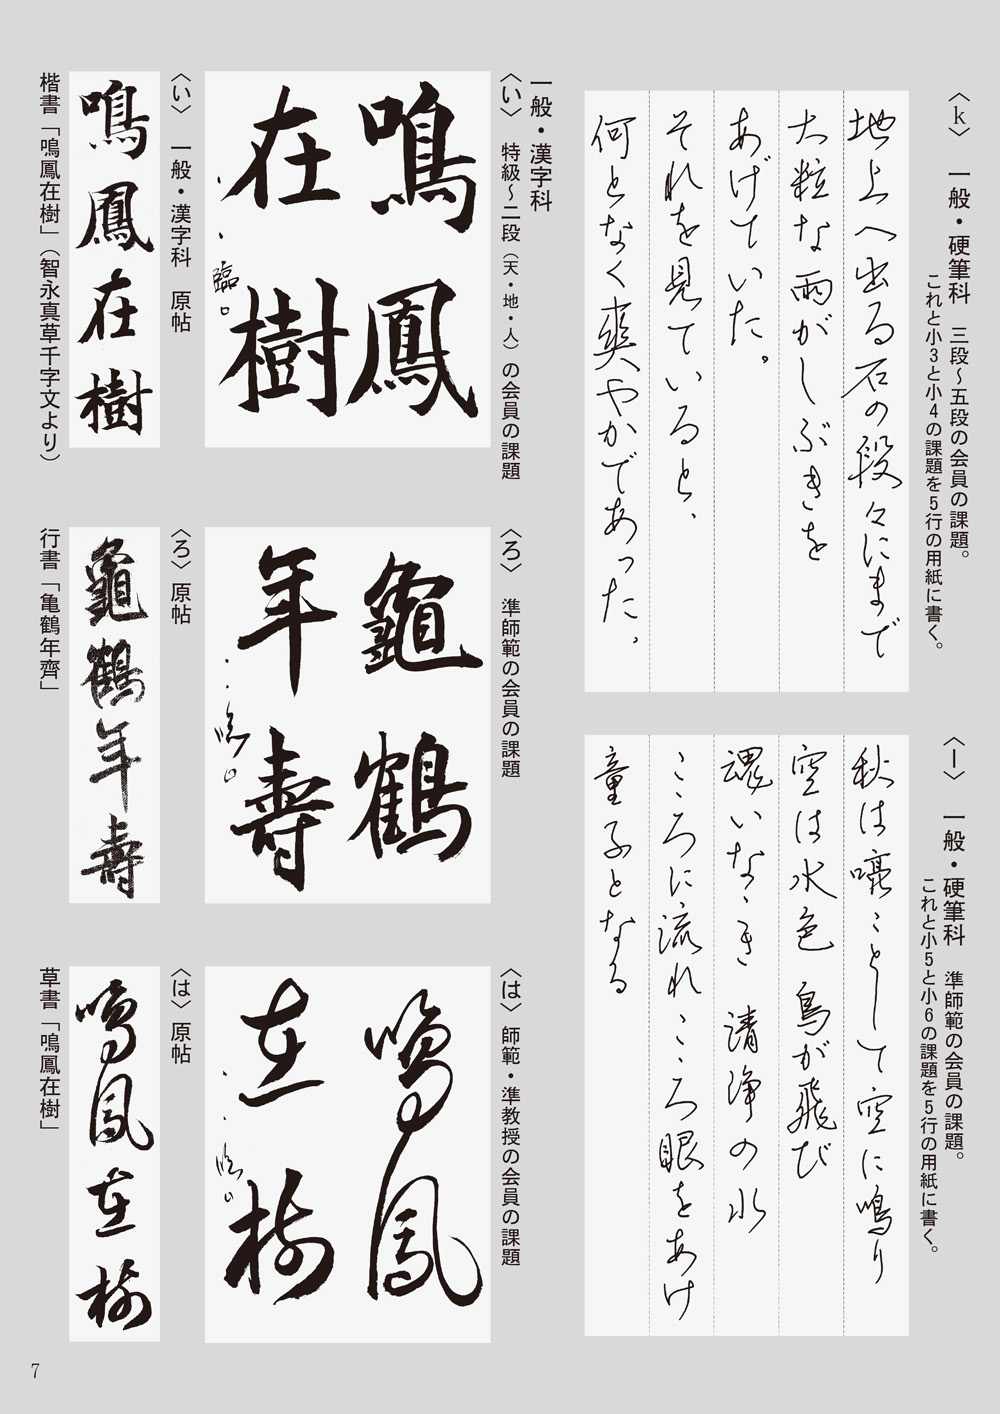 〈ｋ〉　一般・硬筆科　三段～五段の会員の課題。
これと小３と小４の課題を５行の用紙に書く。
地上へ出る石の段々にまで
大粒な雨がしぶきを
あげていた。
それを見ていると、
何となく爽やかであった。
〈ｌ〉　一般・硬筆科　準師範の会員の課題。
これと小５と小６の課題を５行の用紙に書く。
秋は嚠々として空に鳴り
空は水色 鳥が飛び
魂いななき 清浄の水
こころに流れ こころ眼をあけ
童子となる
一般・漢字科
〈い〉　特級～二段（天・地・人）の会員の課題
鳴鳳
在樹
・・臨□
〈い〉　一般・漢字科　原帖
鳴鳳在樹
楷書「鳴鳳在樹」（智永真草千字文より）
〈ろ〉　準師範の会員の課題
龜鶴
年壽
・・臨□
〈ろ〉原帖
龜鶴年壽
行書「亀鶴年齊」
〈は〉師範・準教授の会員の課題
鳴鳳
在樹
・・臨□
〈は〉原帖
鳴鳳在樹
草書「鳴鳳在樹」
7